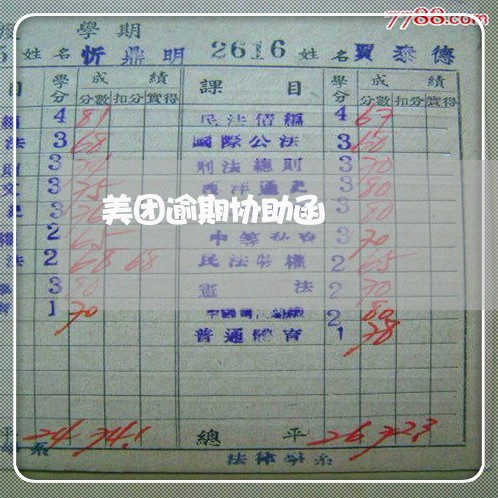 7788.com
學期
姓名 忻鼎明 2616 姓名 賈泰德
目 學分 成績 課目 學分 成績
分數 扣分 實得 分數 扣分 實得
4 81 民法債編 4 67
法 3 68 國際公法 3 60
3 刑法總則 3 70
文 3 75 西洋通史 3 80
3 3 80
美团逾期协助函
權 2 65 3 70
法 2 68 68 民法物權 2 65
3 80 憲法 2 70
1 70 2 80
普通體育 1 78
平 24 74.1 總平 26 72.3
系 法律學系